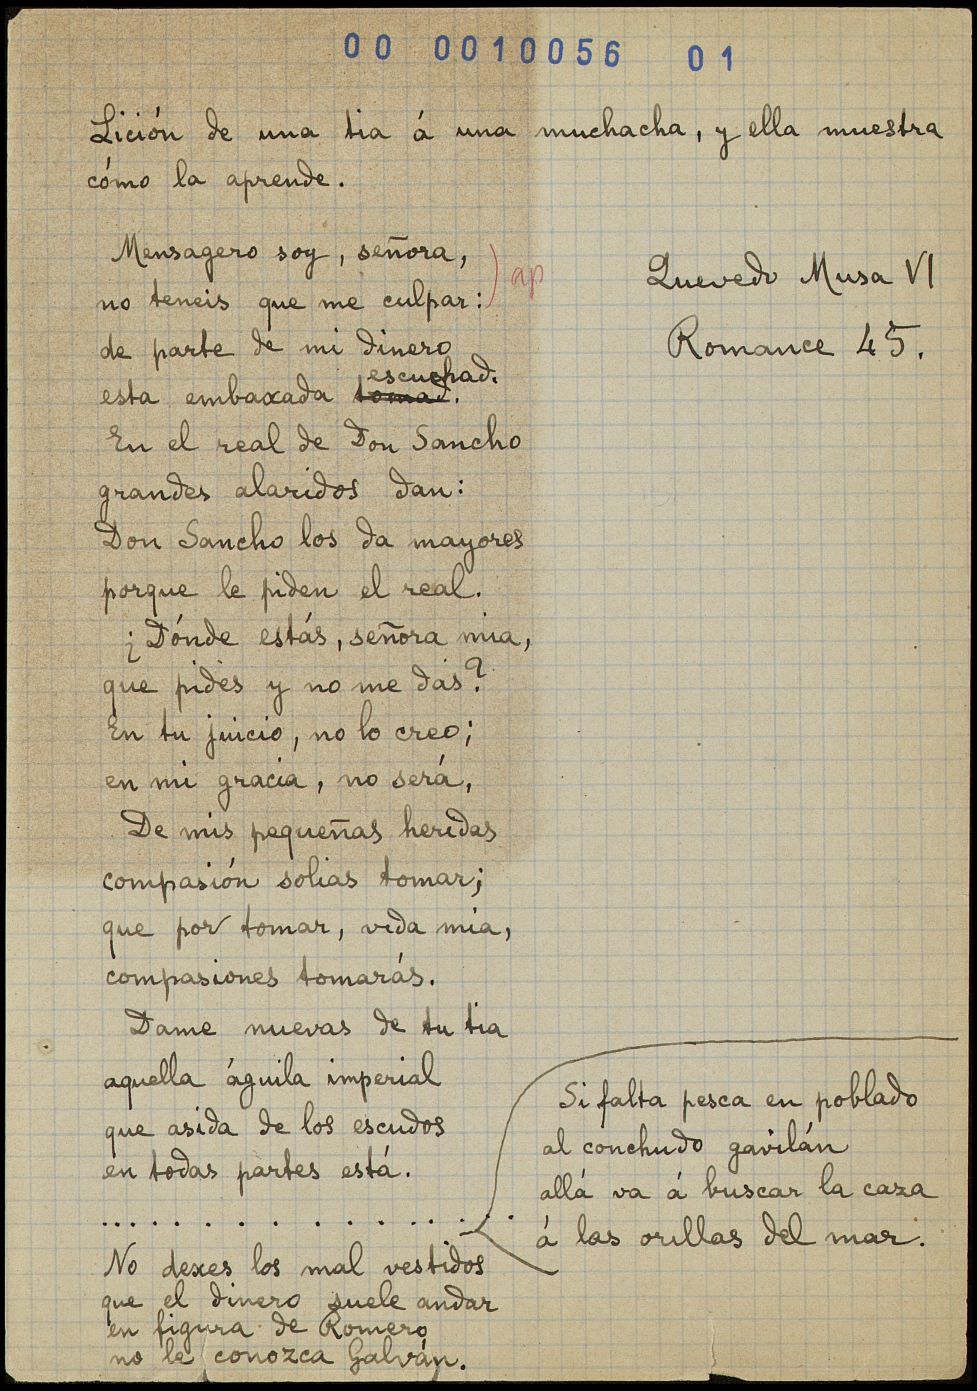 00 0010056 01
Lición de una tia á una muchacha, y ella muestra
cómo la aprende.
Mensagero soy, señora,
no teneis que me culpar:
de parte de mi dinero
esta embaxada tomad. escuchad.
En el real de Don Sancho
grandes alaridos dan:
Don Sancho los da mayores
porque le piden el real.
¿Dónde estás, señora mia,
que pides y no me das?
En tu juicio, no lo creo;
en mi gracia, no será,
De mis pequeñas heridas
compasión solias tomar;
que por tomar, vida mia,
compasiones tomarás.
Dame nuevas de tu tia
aquella águila imperial
que asida de los escudos
en todas partes está.
. . . . . . . . . . . . . . . .
No dexes los mal vestidos
que el dinero suele andar
en figura de Romero
no le conozca Galván.
ap
Quevedo Musa VI
Romance 45.
Si falta pesca en poblado
al conchudo gavilán
allá va á buscar la caza
á las orillas del mar.